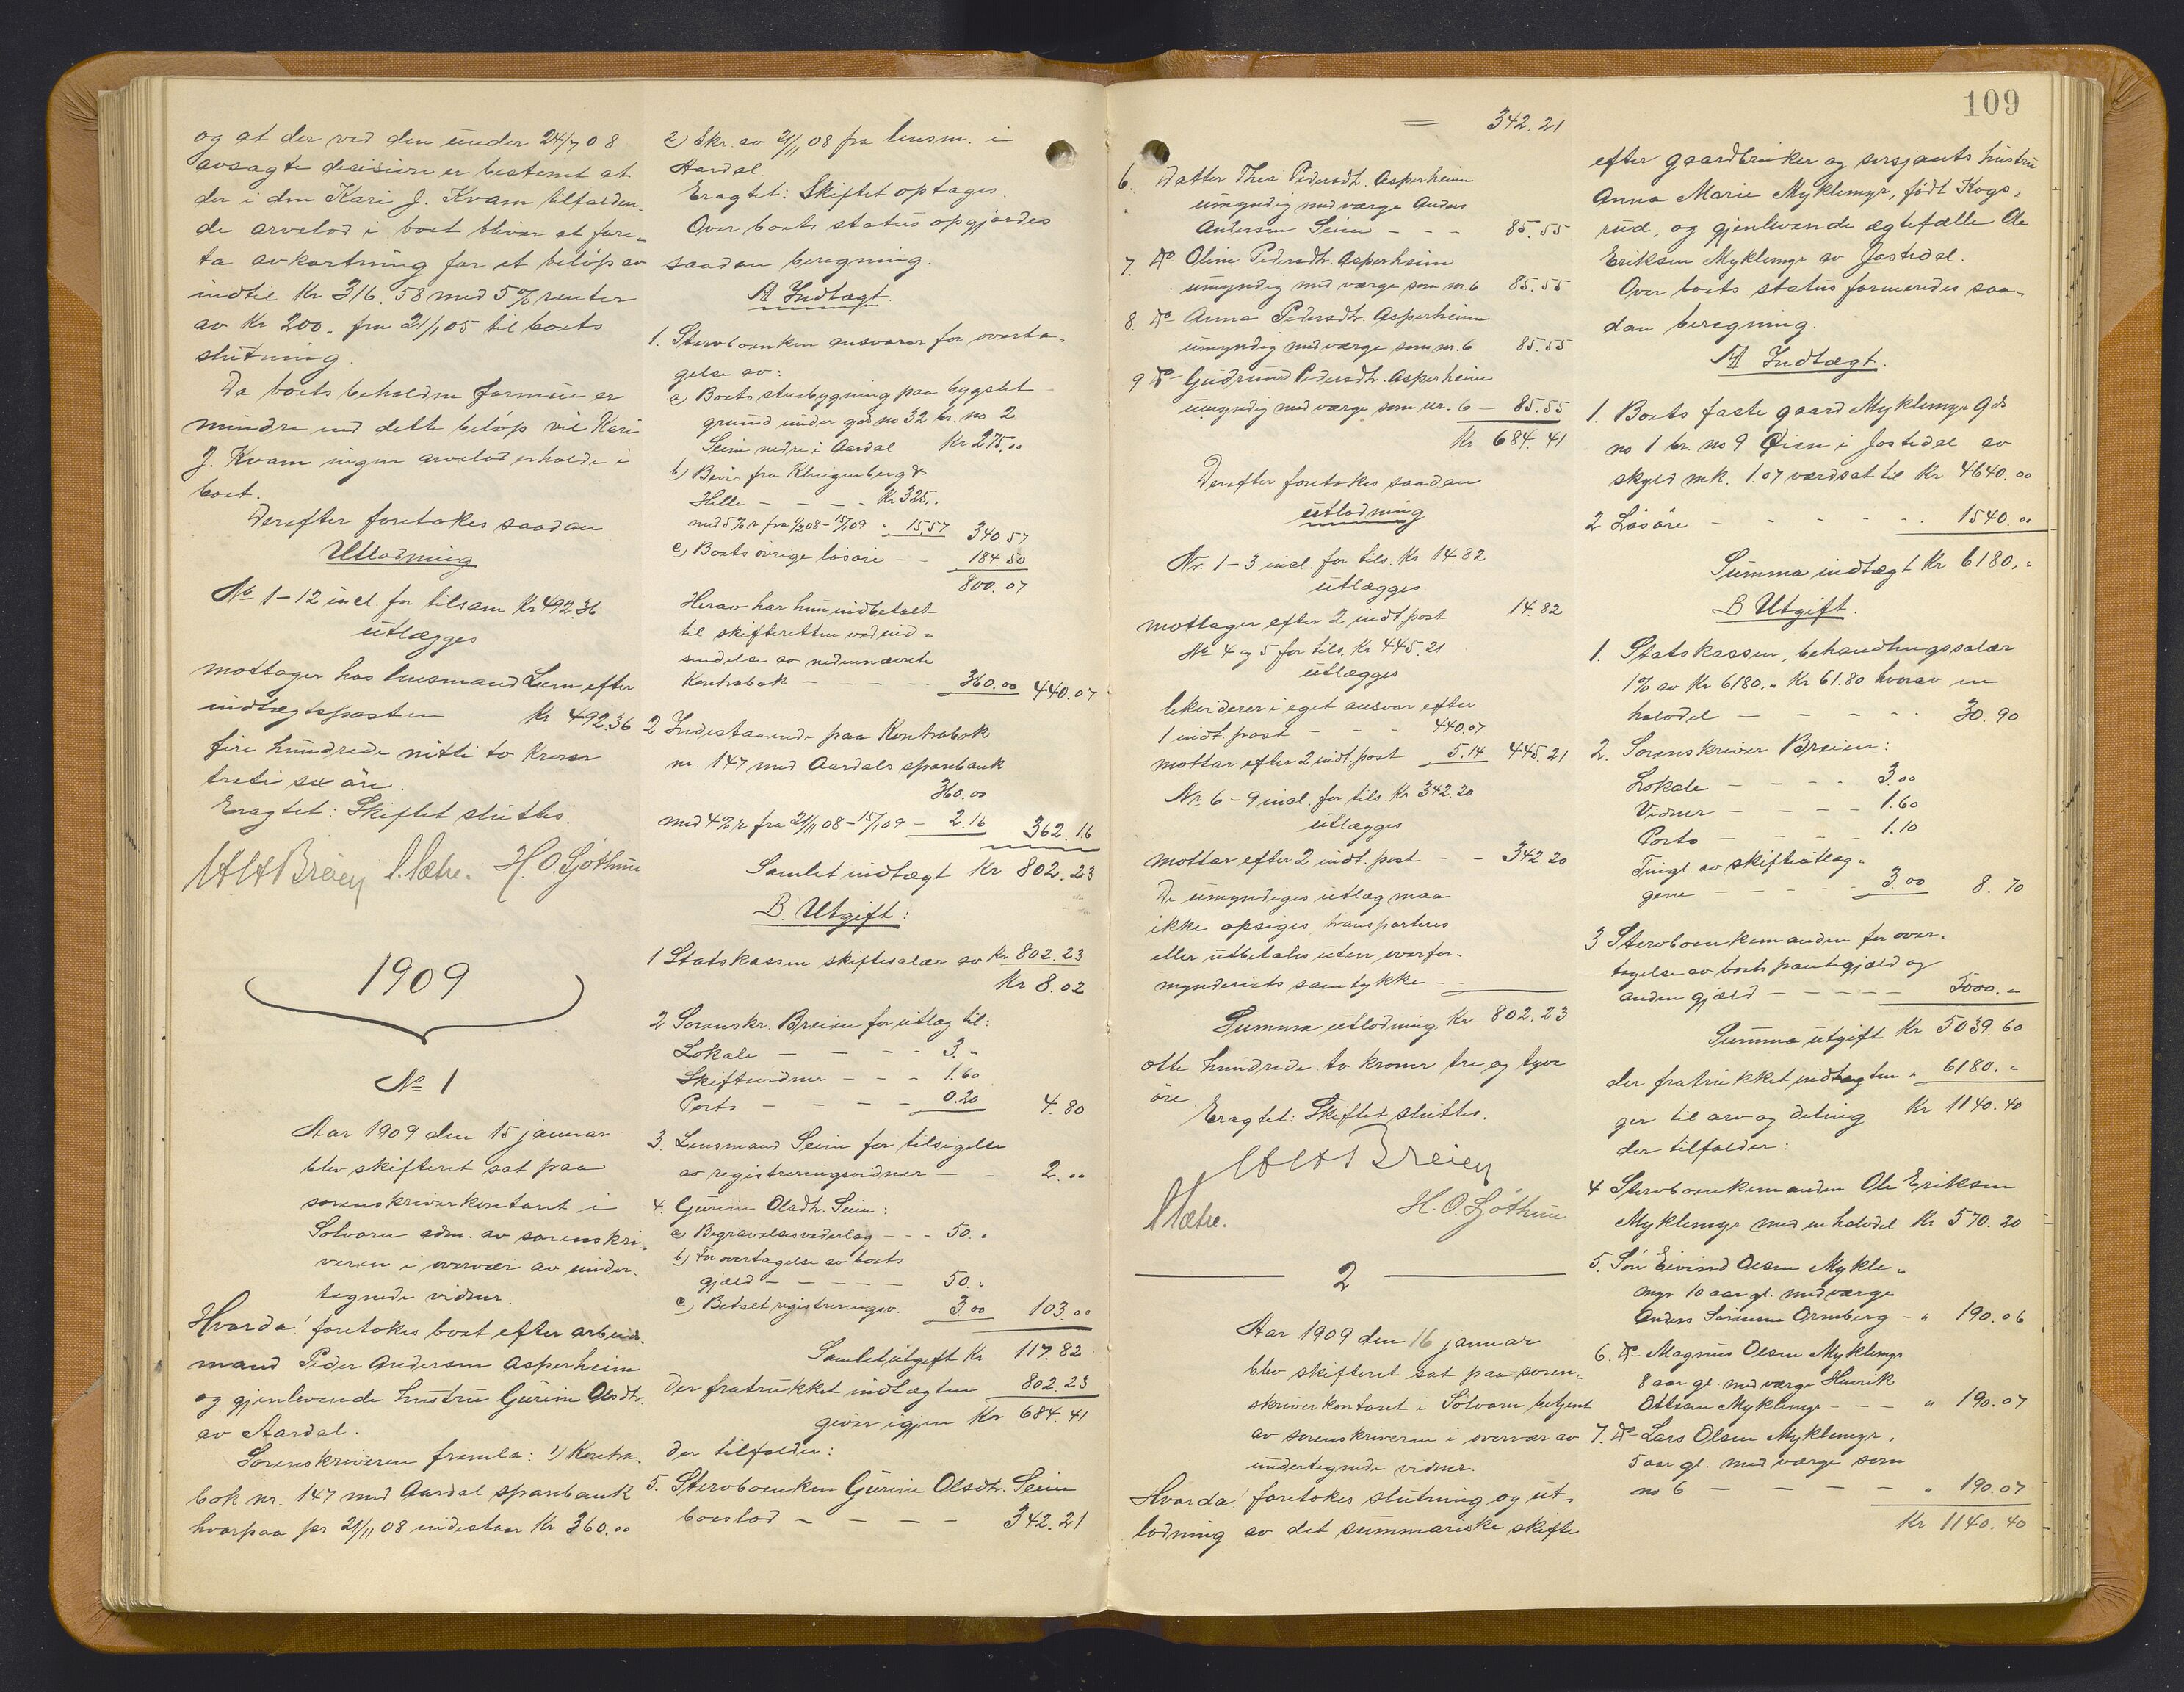 og at der ved den under 24/7 08
avsagte decision er bestemt at
der i den Kari J. Kvam tilfalden-
de arvelod i boet bliver at fore-
ta avkortning for et beløp av
indtil Kr 316.58 med 5% renter
av Kr 200.- fra 21/1 05 til boets
slutning.
Da boets beholdne formue er
mindre end dette beløp vil Kari
J. Kvam ingen arvelod erholde i
boet.
Derefter foretokes saadan
Utlodning
No 1-12 incl. for tilsam Kr 492.36
utlægges
mottager hos lensmand Lem efter
indtægtsposten Kr 492.36
fire hundrede nitti to Kroner
treti sex øre.
Eragtet: Skiftet sluttes.
H.O. Ljøthun
1909
No 1
Aar 1909 den 15 januar
blev skifteret sat paa
sorenskriverkontoret i
Solvorn adm. av sorenskri-
veren i overvær av under-
tegnede vidner.
Hvorda! foretokes boet efter arbeids-
mand Peder Andersen Asperheim
og gjenlevende hustru Gurine Olsdtr.
av Aardal.
Sorenskriveren fremla: 1) Kontra-
bok nr. 147 med Aardal sparebank
hvorpaa pr 21/11 08 indestaar Kr 360.00
2) Skr. av 21/11 08 fra lensm. i
Aardal.
Eragtet: Skiftet optages.
Over boets status opgjordes
saadan beregning.
A Indtægt.
1. Stervboenken ansvarer for overta-
gelse av:
a) Boets stuebygning paa bygslet
grund under gds no 32 br. no 2
Seim nedre i Aardal Kr 275.00
b) Bevis fra Klingenberg &
Hille - - - - Kr 325.
med 5% r fra 1/2 08 - 15/1 09 " 15.57 340.57
c) Boets øvrige løsøre - - 184.50
800.07
Herav har hun indbetalt
til skifteretten ved ind-
sendelse av nedennævnte
Kontrabok - - - - 360.00 440.07
2 Indestaaende paa Kontrabok
nr. 147 med Aardals sparebank
360.00
med 4% r fra 21/11 08 - 15/1 09 - 2.16 362.16
Samlet indtægt Kr 802.23
B. Utgift:
1 Statskassen skiftesalær av Kr 802.23
Kr 8.02
2 Sorenskr. Breien for utlæg til:
Lokale - - - - 3.-
Skiftevidner - - - 1.60
Porto - - - - 0.20 4.80
3. Lensmand Seim for tilsigelse
av registreringsvidner - - 2.00
4. Gurine Olsdtr. Seim:
a) Begravelsesvederlag - - - 50.-
b) For overtagelse av boets
gjæld - - - - - 50.-
c) Betalt registreringsv. 3.00 103.00
Samlet utgift Kr 117.82
Der fratrukket indtægten 802.23
giver igjen Kr 684.41
der tilfalder:
5. Stervboenken Gurine Olsdtr. Seim
boeslod - - - - - 342.21
109
= 342.21
6. Datter Thea Pedersdt. Asperheim
umyndig med værge Anders
Andersen Seim - - - 85.55
7. do. Oline Pedersdtr. Asperheim
umyndig med værge som nr. 6 85.55
8. do - Anna Pedersdtr. Asperheim
umyndig med værge som nr. 6 85.55
9 do - Gudrund Pedersdtr. Asperheim
umyndig med værge som nr. 6 - 85.55
Kr 684.41
Derefter foretokes saadan
utlodning
Nr. 1-3 incl. for tils. Kr 14.82
utlægges
mottager efter 2 indt. post 14.82
No 4 og 5 for tils. Kr 445.21
utlægges
likviderer i eget ansvar efter
1 indt. post - - - 440.07
mottar efter 2 indt. post 5.14 445.21
Nr. 6-9 incl. for tils. Kr 342.20
utlægges
mottar efter 2 indt. post - - 342.20
De umyndiges utlæg maa
ikke opsiges transporteres
eller utbetales uten overfor-
mynderiets samtykke -
Summa utlodning Kr 802.23
otte hundrede to kroner tre og tyve
øre.
Eragtet: Skiftet sluttes.
H.O. Ljøthun
2
Aar 1909 den 16 januar
blev skifteret sat paa soren-
skriverkontoret i Solvorn betjent
av sorenskriveren i overvær av
undertegnede vidner.
Hvorda! foretokes slutning og ut-
lodning av det summariske skifte
efter gaardbruker og sersjants hustru
Anna Marie Myklemyr, født Kogs-
rud, og gjenlevende ægtefælle Ole
Eriksen Myklemyr av Jostedal.
Over boets status formeredes saa-
dan beregning.
A Indtægt.
1. Boets faste gaard Myklemyr gds
no 1 br. no 9 Øien i Jostedal av
skyld mk. 1.07 værdsat til Kr 4640.00
2 Løsøre - - - - - 1540.00
Summa indtægt Kr 6180.-
B Utgift.
1. Statskassen, behandlingssalær
1% av Kr 6180.- Kr 61.80 hvorav en
halvdel - - - - - 30.90
2. Sorenskriver Breien:
Lokale - - - - 3.00
Vidner - - - - 1.60
Porto - - - - 1.10
Tingl. av skifteutlæg-
gene - - - - - 3.00 8.70
3 Stervboenkemanden for over-
tagelse av boets pantegjæld og
anden gjæld - - - - - 5000.-
Summa utgift Kr 5039.60
der fratrukket indtægten " 6180.-
gir til arv og deling Kr 1140.40
der tilfalder:
4 Stervboenkemanden Ole Eriksen
Myklemyr med en halvdel Kr 570.20
5. Søn Eivind Olsen Mykle-
myr 10 aar gl. med værge
Anders Sørensen Ormberg - " 190.06
6. do - Magnus Olsen Myklemyr
8 aar gl. med værge Henrik
Ottesen Myklemyr - - - " 190.07
7. do - Lars Olsen Myklemyr,
5 aar gl. med værge som
no 6 - - - - - " 190.07
Kr 1140.40